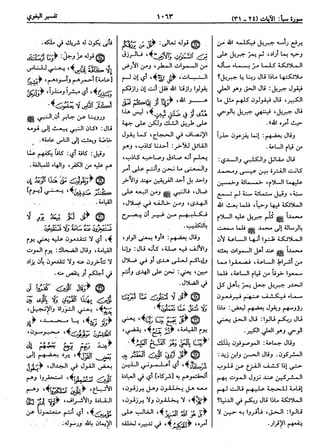 تفسير البغوي
١٠٦٣
سورة سبأ: الآيات (٢٤ - ٣١)
يرفع رأسه جبريل فيكلمه الله من
وحيه بما أراد، ثم يمرّ جبريل على
الملائكة كلما مرّ بسماء سأله
ملائكتها ماذا قال ربنا يا جبريل؟
فيقول جبريل: قال الحق وهو العلي
الكبير، قال فيقولون كلهم مثل ما
قال جبريل، فينتهي جبريل بالوحي
حيث أمره الله».
وقال بعضهم: إنما يفزعون حذرًا
من قيام الساعة.
قال مقاتل والكلبي والسدي:
كانت الفترة بين عيسى ومحمد
عليهما السلام، خمسمائة وخمسين
سنة، وقيل ستمائة سنة لم تسمع
الملائكة فيها وحيًا، فلما بعث الله
محمدًا ﷺ كلم جبريل عليه السلام
بالرسالة إلى محمد ﷺ فلما سمعت
الملائكة ظنوا أنها الساعة لأن
محمدًا ﷺ عند أهل السموات بعثته
من أشراط الساعة، فصعقوا مما
سمعوا خوفًا من قيام الساعة، فلما
انحدر جبريل جعل يمرّ بأهل كل
سماء فيكشف عنهم فيرفعون
رؤوسهم ويقول بعضهم لبعض: ماذا
قال ربكم قالوا: قال الحق يعني
الوحي وهو العلي الكبير.
وقال جماعة: الموصوفون بذلك
المشركون. وقال الحسن وابن زيد:
حتى إذا كشف الفزع عن قلوب
المشركين عند نزول الموت بهم
إقامة للحجة عليهم قالت لهم
الملائكة ماذا قال ربكم في الدنيا؟
قالوا: الحق، فأقروا به حين لا
ينفعهم الإقرار.
قوله تعالى:
من السموات المطر، ومن الأرض
النبات، أي إن لم
يقولوا رازقنا الله فقل أنت إن رازقكم
هو الله، ليس هذا
على طريق الشك ولكن على جهة
الإنصاف في الحجاج، كما يقول
القائل للآخر: أحدنا كاذب، وهو
يعلم أنه صادق وصاحبه كاذب،
والمعنى ما نحن وأنتم على أمر
واحد بل أحد الفريقين مهتد والآخر
ضال، فالنبي ﷺ ومن اتبعه على
الهدى، ومن خالفه في ضلال،
فكذبهم من غير أن يصرح
بالتكذيب.
وقال بعضهم: «أو» بمعنى الواو،
والألف فيه صلة، كأنه قال: وإنا
وإياكم لعلى هدى أو في ضلال
مبين، يعني: نحن على الهدى وأنتم
في الضلال.
يعني
يوم القيامة، يقضي،
أي أعلموني الذين
ألحقتموهم به أي في العبادة
معه هل يخلقون وهل يرزقون،
لا يخلقون ولا يرزقون،
الغالب على
أمره، في تدبيره لخلقه
فأنى يكون له شريك في ملكه.
قوله عزّ وجلّ:
يعني للناس
عامة أحمرهم وأسودهم،
أي مبشرًا ومنذرًا،
وروينا عن جابر أن النبي ﷺ
قال: «كان النبي يبعث إلى قومه
خاصة وبعثت إلى الناس عامة».
وقيل: كافة أي: كافًا يكفهم عما
هم عليه من الكفر، والهاء للمبالغة.
يعني
القيامة.
أي لا تتقدمون عليه يعني يوم
القيامة، وقال الضحاك: يوم الموت
لا تتأخرون عنه ولا تتقدمون بأن يزاد
في أجلكم أو ينقص منه.
يعني التوراة والإنجيل،
يا محمد،
محبوسون،
يرد بعضهم إلى
بعض القول في الجدال،
استحقروا وهم
الأتباع، وهم
القادة والأشراف،
أي أنتم منعتمونا عن
الإيمان بالله ورسوله.